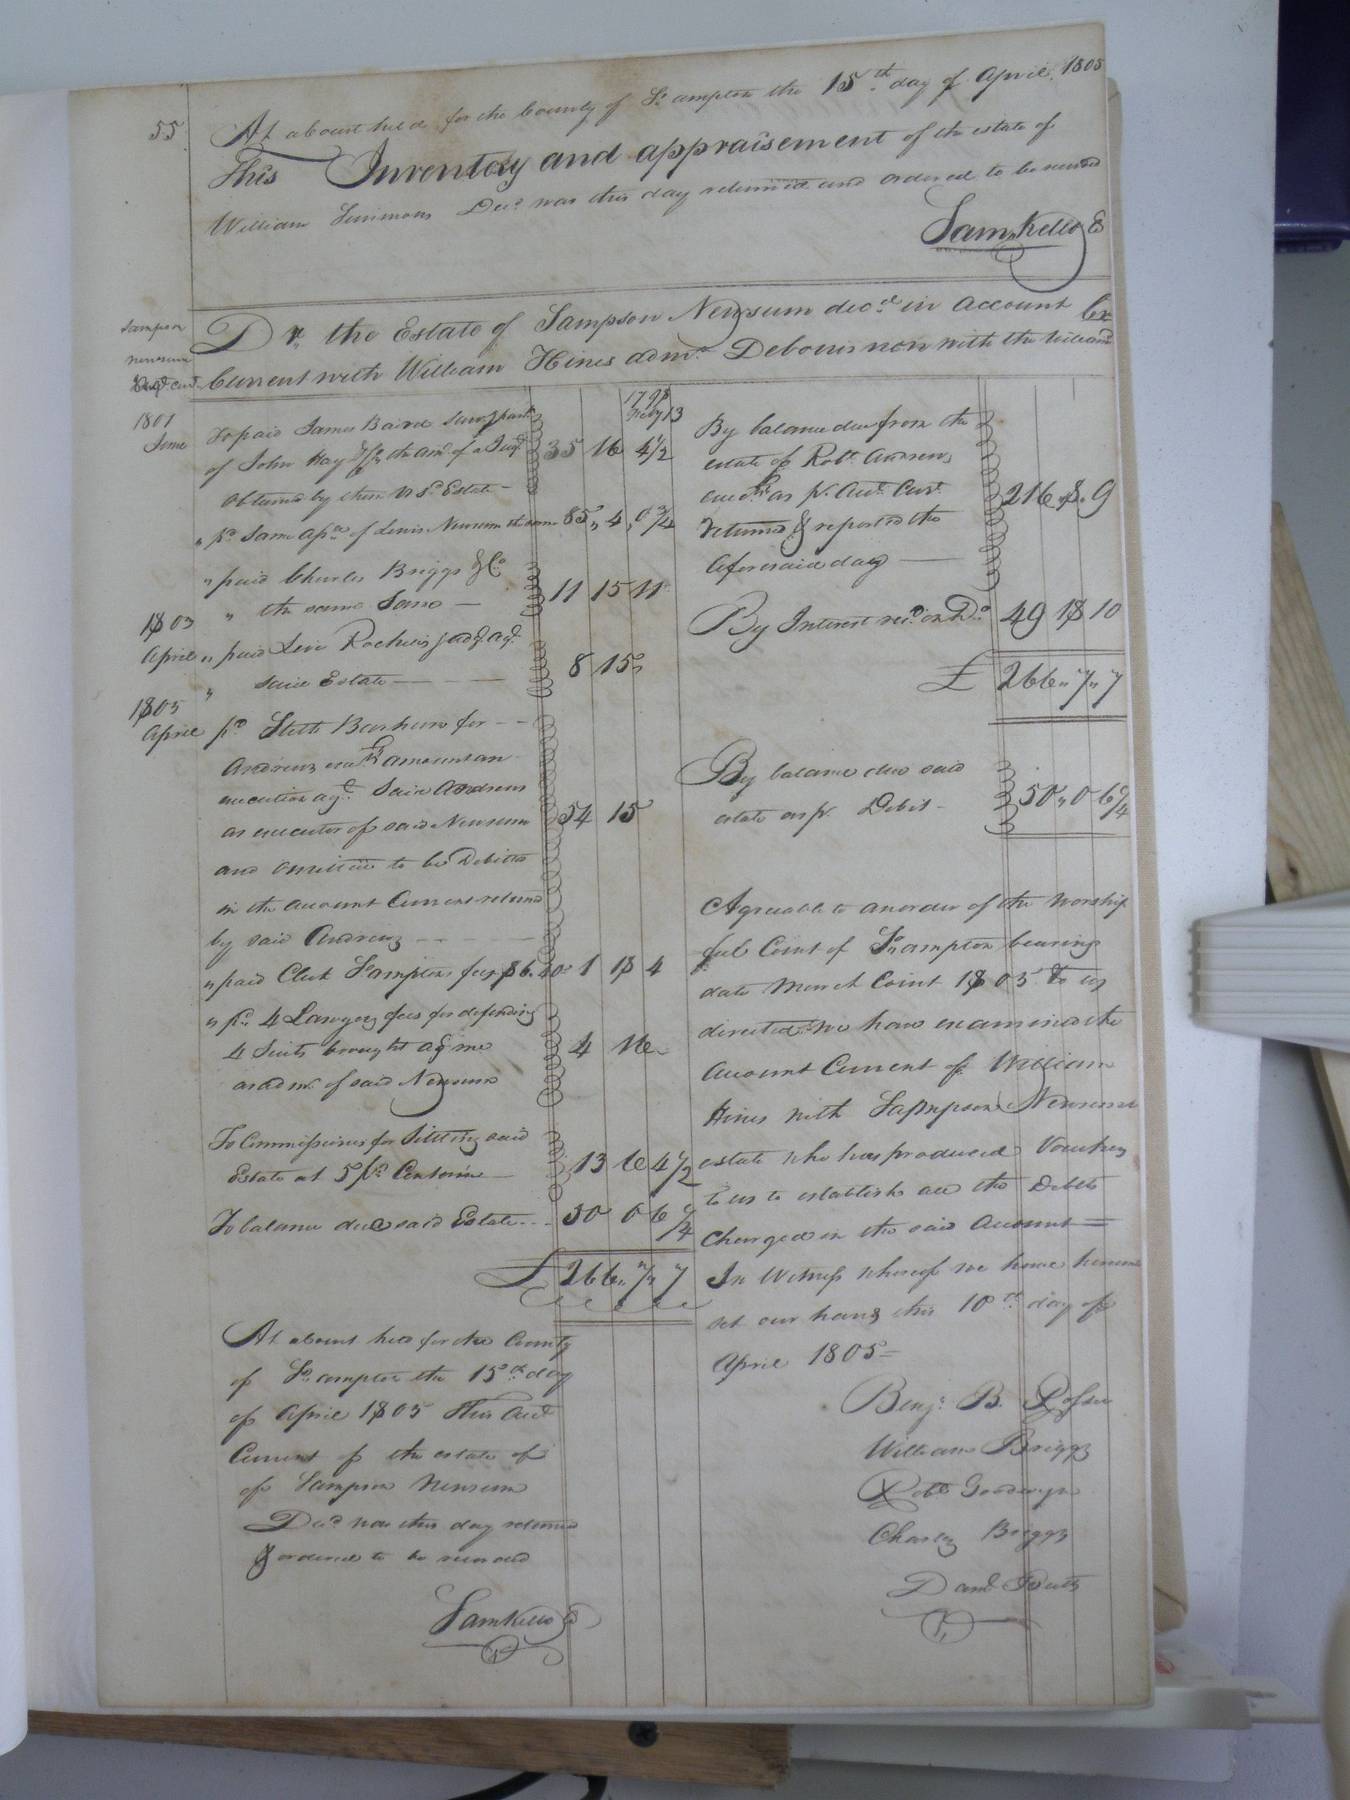 55
At a Court held for the County of So.ampton the 15th day of April 1805
This Inventory and appraisement of the estate of
William Simmons Decd was this day returned and ordered to be recorded
Sam. Kello C
Sampson
Newsum
Dr the Estate of Sampson Newsum decd in account Cr
Current with William Hines admr Debonis non with the will annd
1798
Feby 13
1801
June
To paid James Baird surv. part
of John Hay &Co the amt. of a Jugt
obtained by them vs sd. Estate - 35 16 4½
" pd same of Lewis Newsum the same 85 " 4 " 0¾
" paid Charles Briggs &Co
" the same Same - 11 15 11
1803
April " paid Levi Rochels judgt agt
" said Estate - - - 8 15 "
1805
April pd Steth for - -
Andrews exor amount an
execution agt. said Andrews
as executor of said Newsum 54 15
and omitted to be Debited
in the account Current returned
by said Andrews - - -
" paid Clerk So.amptons fees $6.40 1 18 4
" pd 4 Lawyers fees for defending
4 Suits brought agt me 4 16 -
as admr. of said Newsum
To Commissions for Settling said
Estate at 5 pr Centum - 13 6 4½
To balance due said Estate - - - 50 0 6¾
£ 266 " 7 " 7
At a Court held for the County
of So.ampton the 15th day
of April 1805 This Acct
Current of the estate of
of Sampson Newsum
Decd was this day returned
& ordered to be recorded
Sam Kello C
By balance due from the
estate of Robt. Andrews
as pr. Acct. Curt. 216 " 8 " 9
returned & reported the
aforesaid day -
By Interest recd. on Do. 49 18 10
£ 266 " 7 " 7
By balance due said
estate as pr. Debit - 50 " 0 6¾
Agreeable to an order of the worship
ful Court of So.ampton bearing
date March Court 1805 to us
directed we have examined the
Account Current of William
Hines with Sampson Newsums
estate who has produced Vouchers
to us to establish all the Debits
Charged in the said Account =
In Witness whereof we have hereunto
set our hands this 10th day of
April 1805 =
Benj. B.
William Briggs
Robt Goodwyn
Charles Briggs